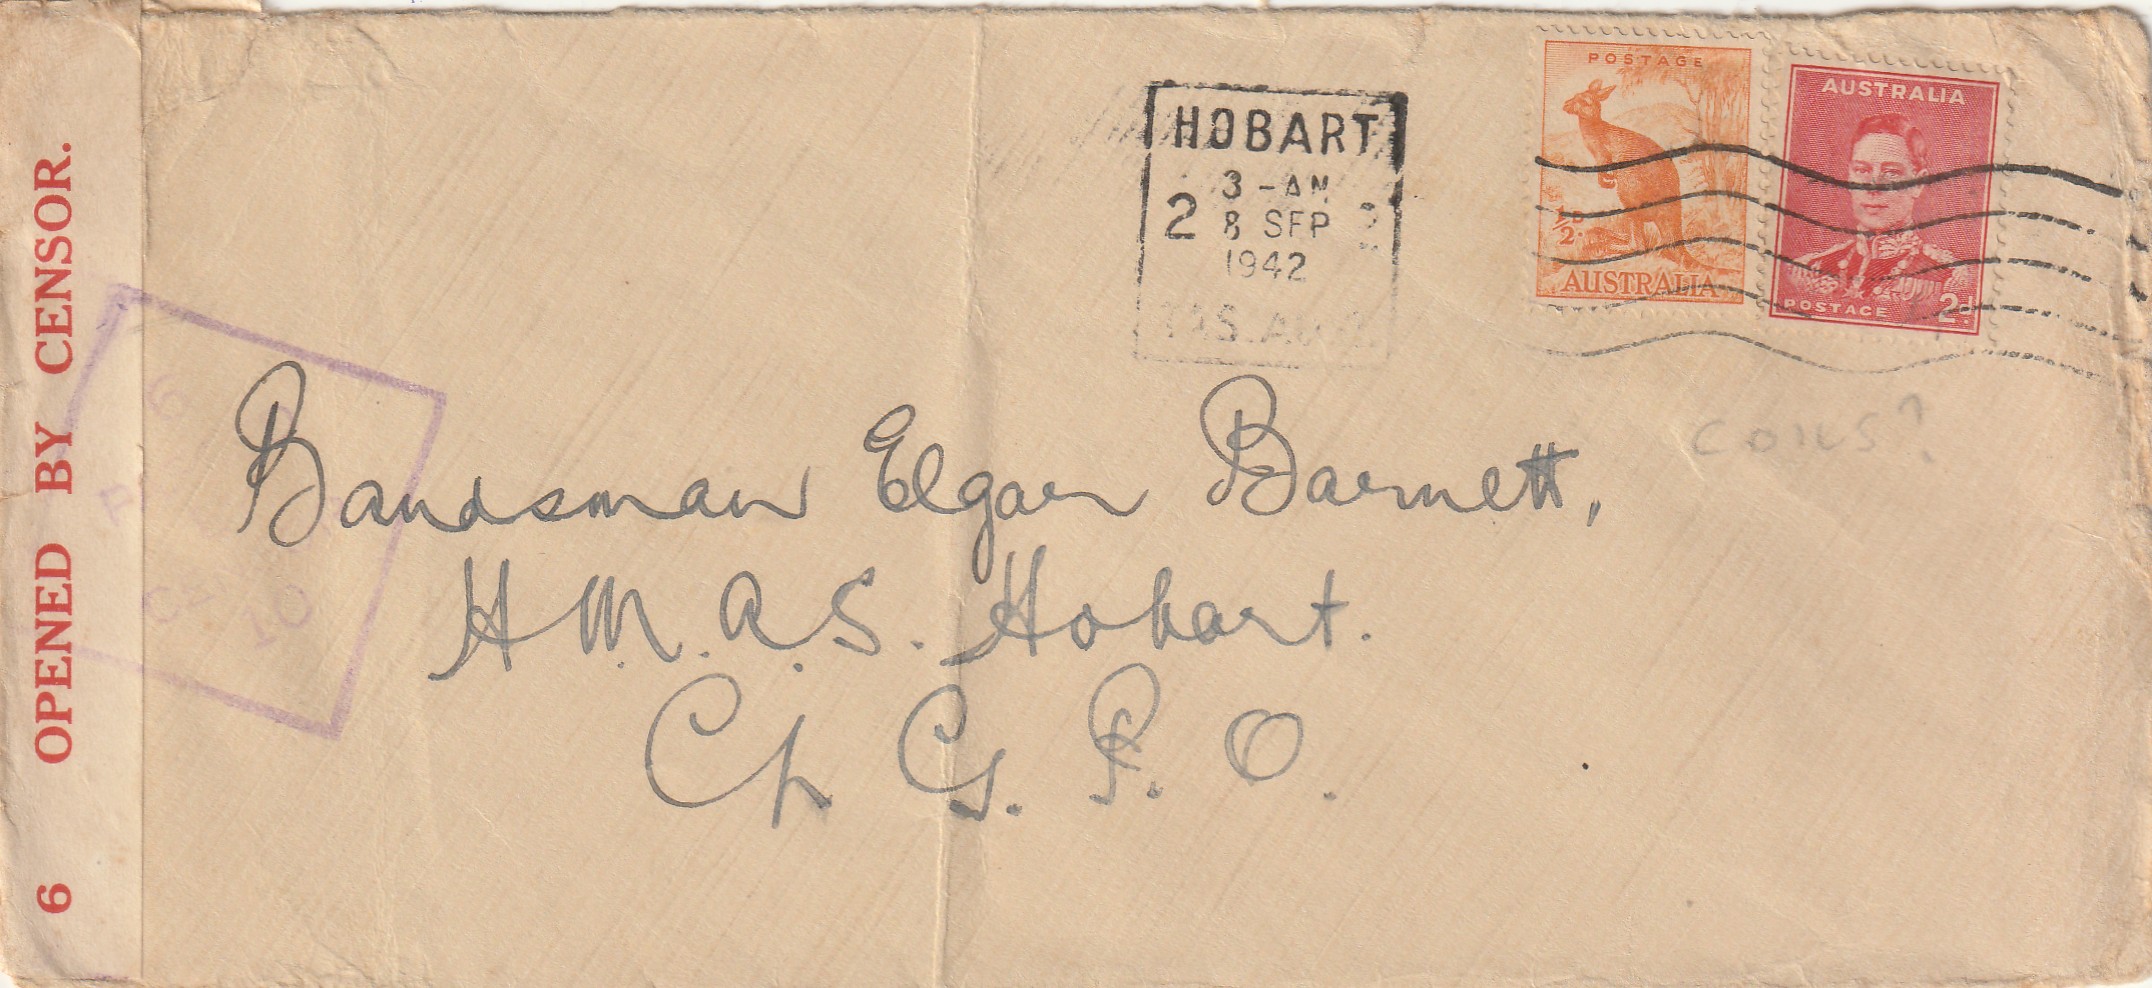 OPENED BY CENSOR.
6
HOBART
3-AM
2 8 SEP 2
1942
TAS. AUS
POSTAGE
½D.
AUSTRALIA
AUSTRALIA
POSTAGE 2D.
COILS?
6
10
Bandsman Elgar Barnett,
H.M.A.S. Hobart.
C/o G.P.O.